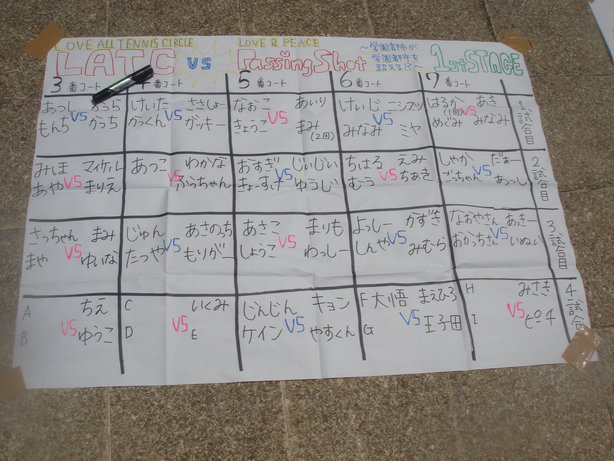 LOVE ALL TENNIS CIRCLE LOVE & PEACE
LATC VS Passing Shot 1st STAGE
〜学園都市が
学園都市を
超える日〜
3番コート 4番コート 5番コート 6番コート 7番コート
あっし もんち VS がっち
けいた がっくん VS さきしょー ガッキー
なおこ きょうこ VS あいり まみ(2回)
けいじ みなみ VS ニシヤン ミヤ
はるか(1回) めぐみ VS あき みなみ
1試合目
みほ あや VS マイケル まりえ
あっこ VS わかな ぶっちゃん
おすぎ きょーすけ VS じいじい ゆうじ
ちはる むう VS えみ ちあき
しゃか ごっちゃん VS だぁー あっし
2試合目
さっちゃん まや VS まみ ゆいな
じゅん たつや VS あさのっち もりがー
あさこ しょうこ VS まりも わっしー
よっしー しんや VS かずき みむら
なおやさん おかっちさん VS あきー いぬい
3試合目
A B VS ちえ ゆうこ
C D VS いくみ E
じんじん ケイン VS キョン やすくん
F 大悟 G VS まえひろ 王子田
H I VS みさき ピロ千
4試合